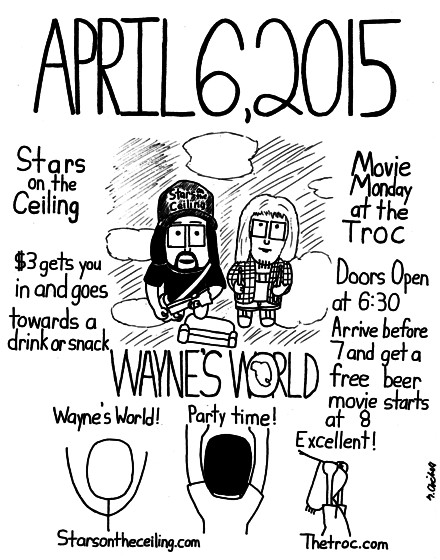 APRIL 6, 2015
Stars
on the
Ceiling
Movie
Monday
at the
Troc
Stars
on the
Ceiling
$3 gets you
in and goes
towards a
drink or snack
Doors Open
at 6:30
Arrive before
7 and get a
free beer
movie starts
at 8
WAYNE'S WORLD
Wayne's World!
Party time!
Excellent!
Starsontheceiling.com
Thetroc.com